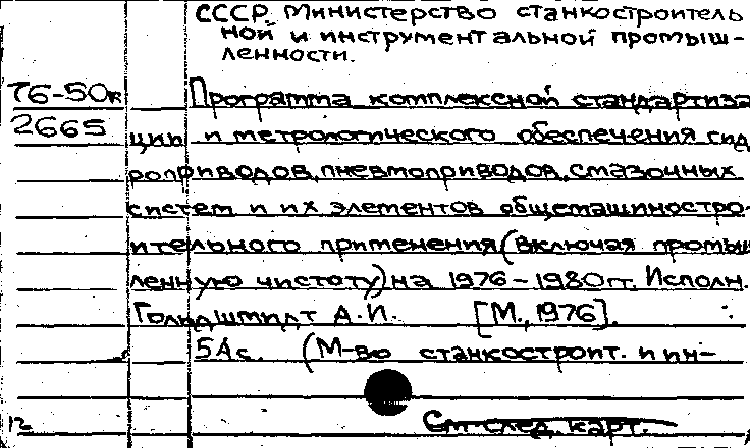 СССР. Министерство станкостроитель
ной и инструментальной промыш-
ленности.
76-50к Программа комплексной стандартиза
2665 ции и метрологического обеспечения гид
роприводов, пневмоприводов, смазочных
систем и их элементов общемашиностро-
ительного применения (включая промыш
ленную чистоту) на 1976-1980 гг. Исполн.
Гольдшмидт А.И. [М., 1976].
54 с. (М-во станкостроит. и ин-
См. след. карт.
12